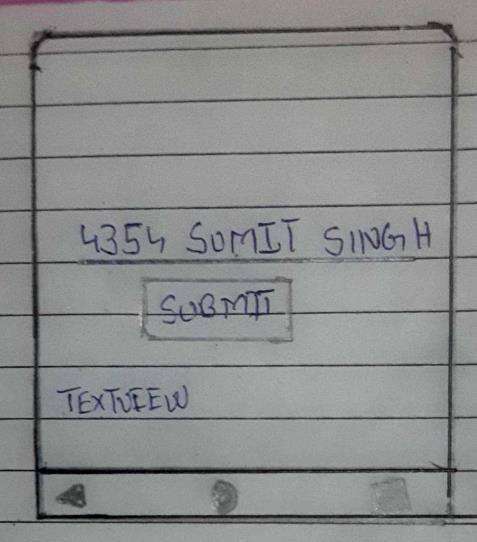 4354 SUMIT SINGH
SUBMIT
TEXTVIEW